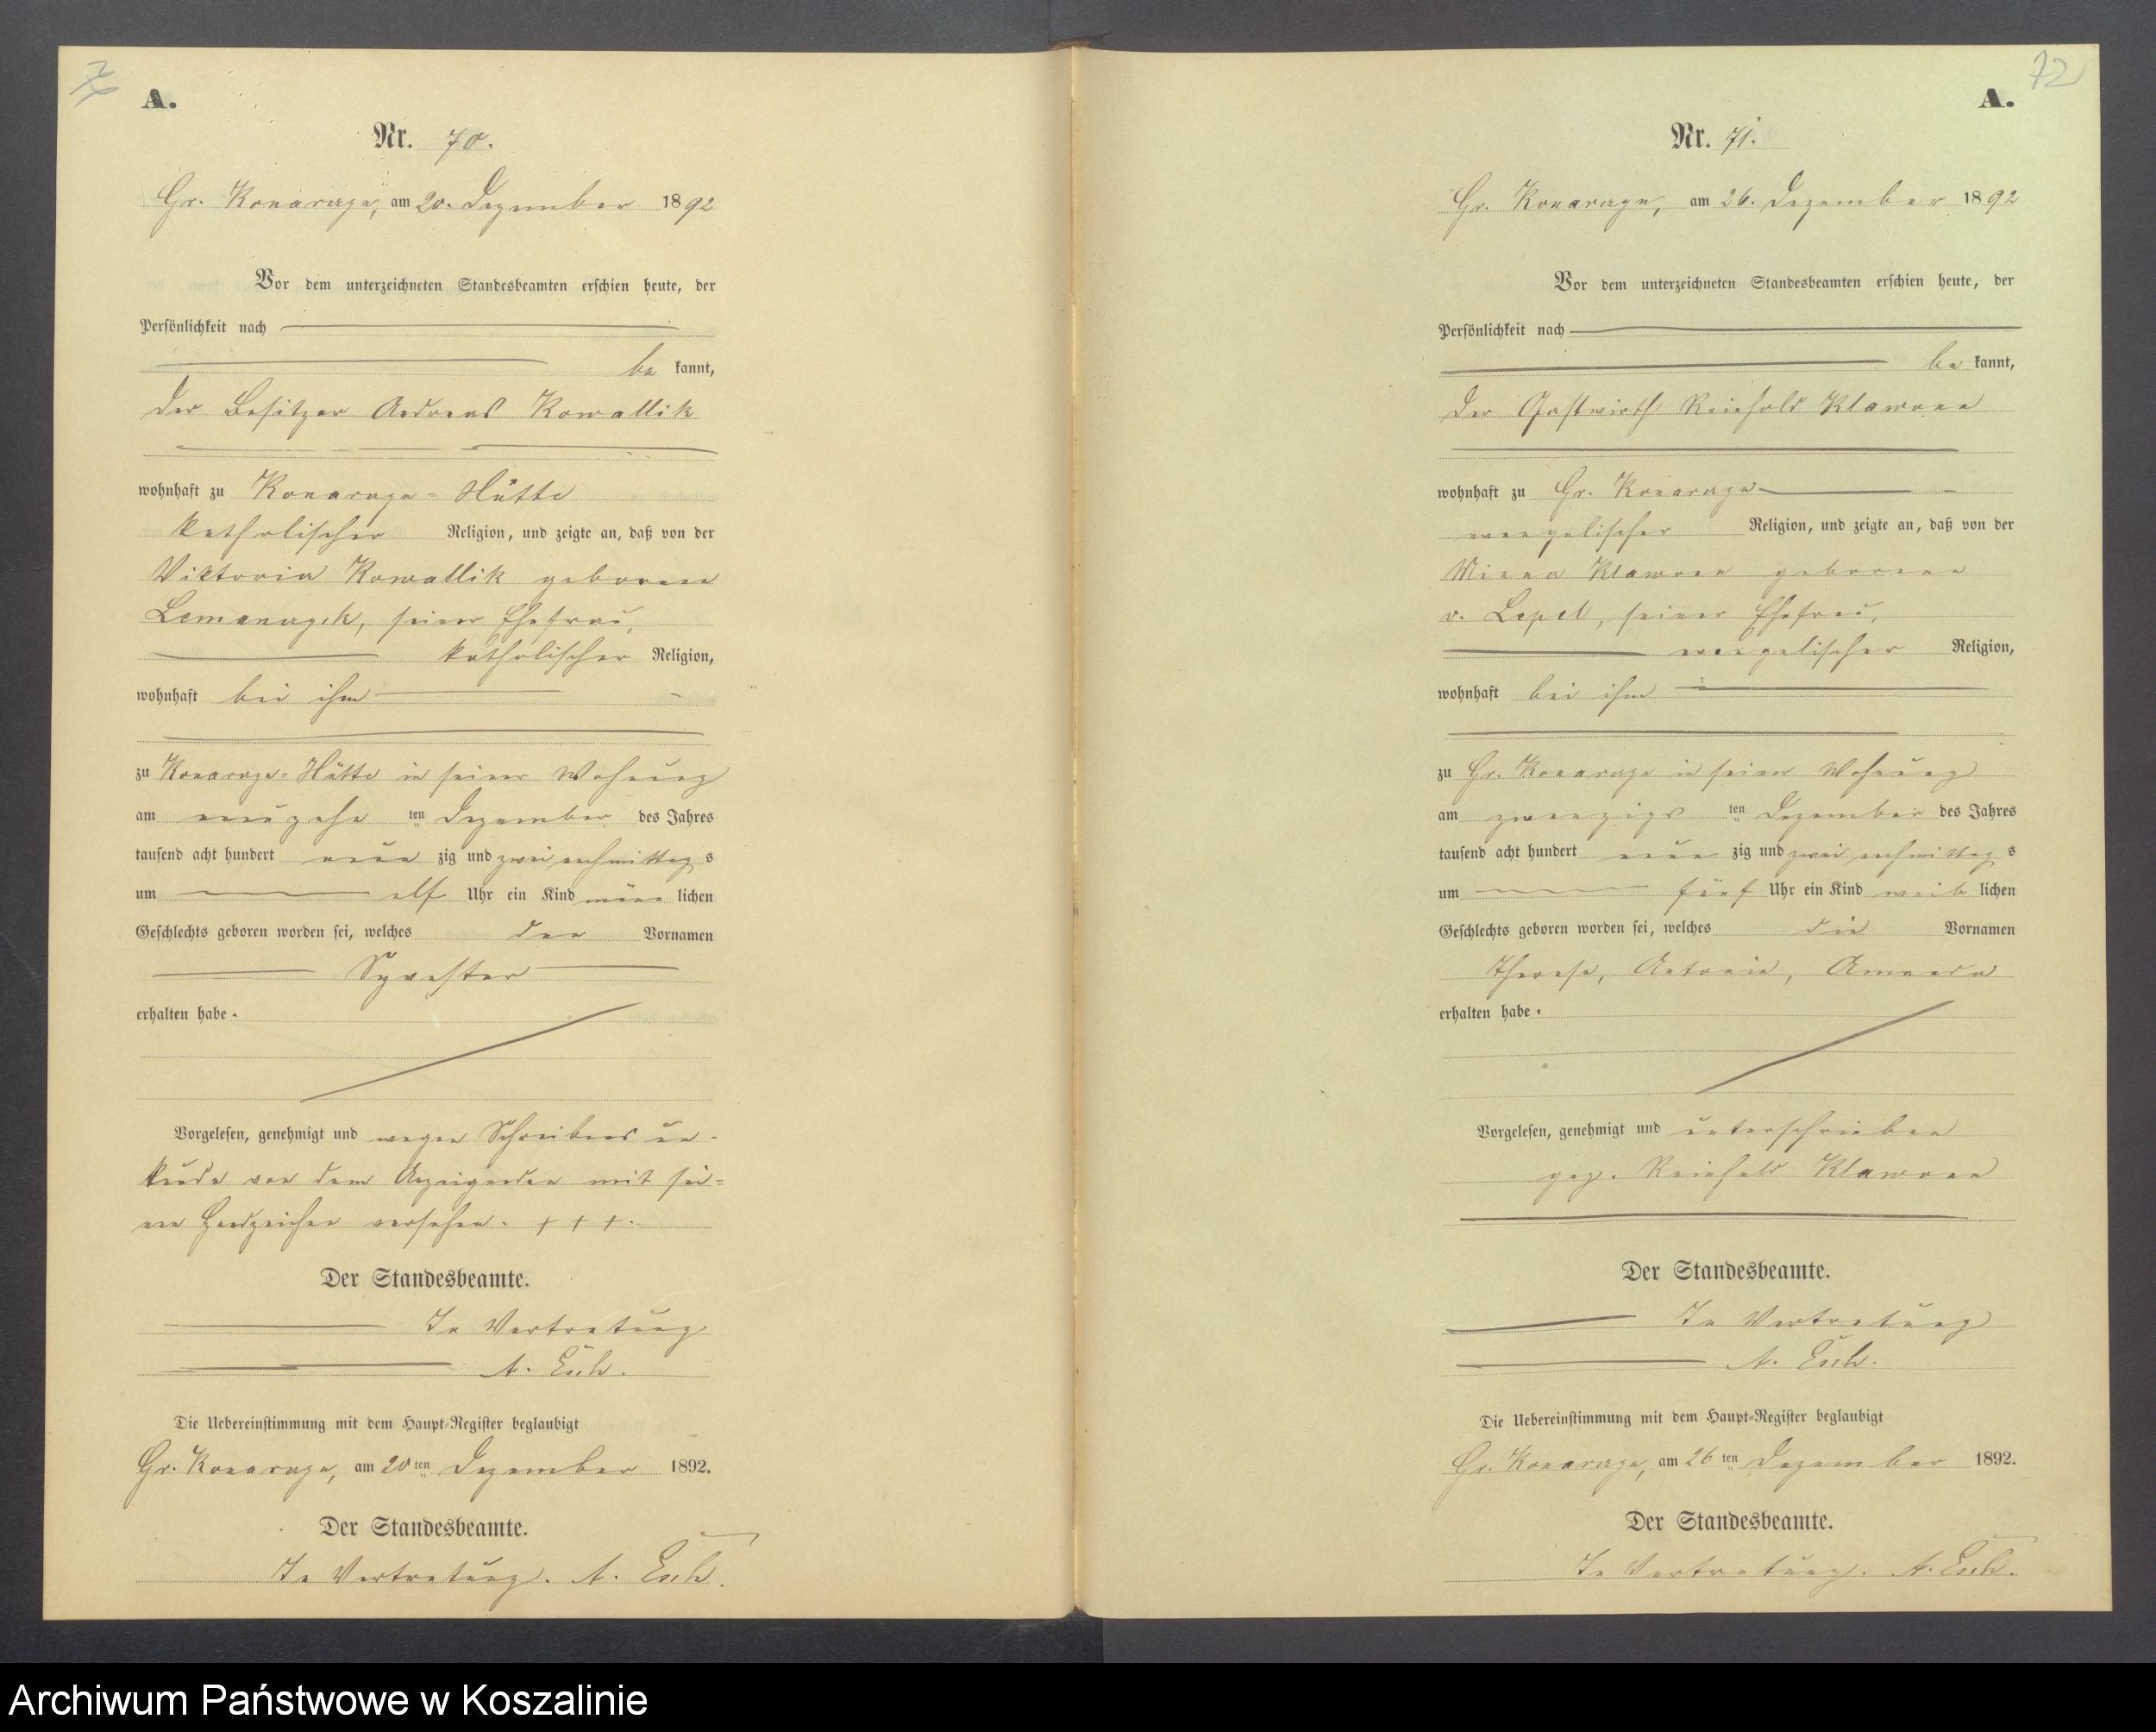 A.
Nr. 70.
Gr. Konarczyn, am 20. Dezember 1892
Vor dem unterzeichneten Standesbeamten erschien heute, der
Persönlichkeit nach
be kannt,
der Besitzer Andreas Kowallik
wohnhaft zu Konarczyn=Hütte
katholischer Religion, und zeigte an, daß von der
Viktoria Kowallik geborene
seiner Ehefrau,
katholischer Religion,
wohnhaft bei ihm
zu Konarczyn=Hütte in seiner Wohnung
am neunzehn ten Dezember des Jahres
tausend acht hundert neun zig und zwei nachmittag s
um elf Uhr ein Kind männ lichen
Geschlechts geboren worden sei, welches den Vornamen
Sylvester
erhalten habe.
Vorgelesen, genehmigt und wegen Schreibens un-
kunde von dem Anzeigenden mit sei=
nen Handzeichen versehen. + + +.
Der Standesbeamte.
In Vertretung
A.
Die Uebereinstimmung mit dem Haupt-Register beglaubigt
Gr. Konarczyn, am 20 ten Dezember 1892.
Der Standesbeamte.
In Vertretung. A.
72
A.
Nr. 71.
Gr. Konarczyn, am 26. Dezember 1892
Vor dem unterzeichneten Standesbeamten erschien heute, der
Persönlichkeit nach
be kannt,
der Gastwirth Reinhold Klawonn
wohnhaft zu Gr. Konarczyn
evangelischer Religion, und zeigte an, daß von der
Minna Klawonn geborene
v. Lepel, seiner Ehefrau,
evangelischer Religion,
wohnhaft bei ihm
zu Gr. Konarczyn in seiner Wohnung
am zwanzigs ten Dezember des Jahres
tausend acht hundert neun zig und zwei nachmittag s
um fünf Uhr ein Kind weib lichen
Geschlechts geboren worden sei, welches die Vornamen
Therese, Antonie, Amanda
erhalten habe.
Vorgelesen, genehmigt und unterschrieben
gez. Reinhold Klawonn
Der Standesbeamte.
In Vertretung
A.
Die Uebereinstimmung mit dem Haupt-Register beglaubigt
Gr. Konarczyn, am 26 ten Dezember 1892.
Der Standesbeamte.
In Vertretung. A.
Archiwum Państwowe w Koszalinie